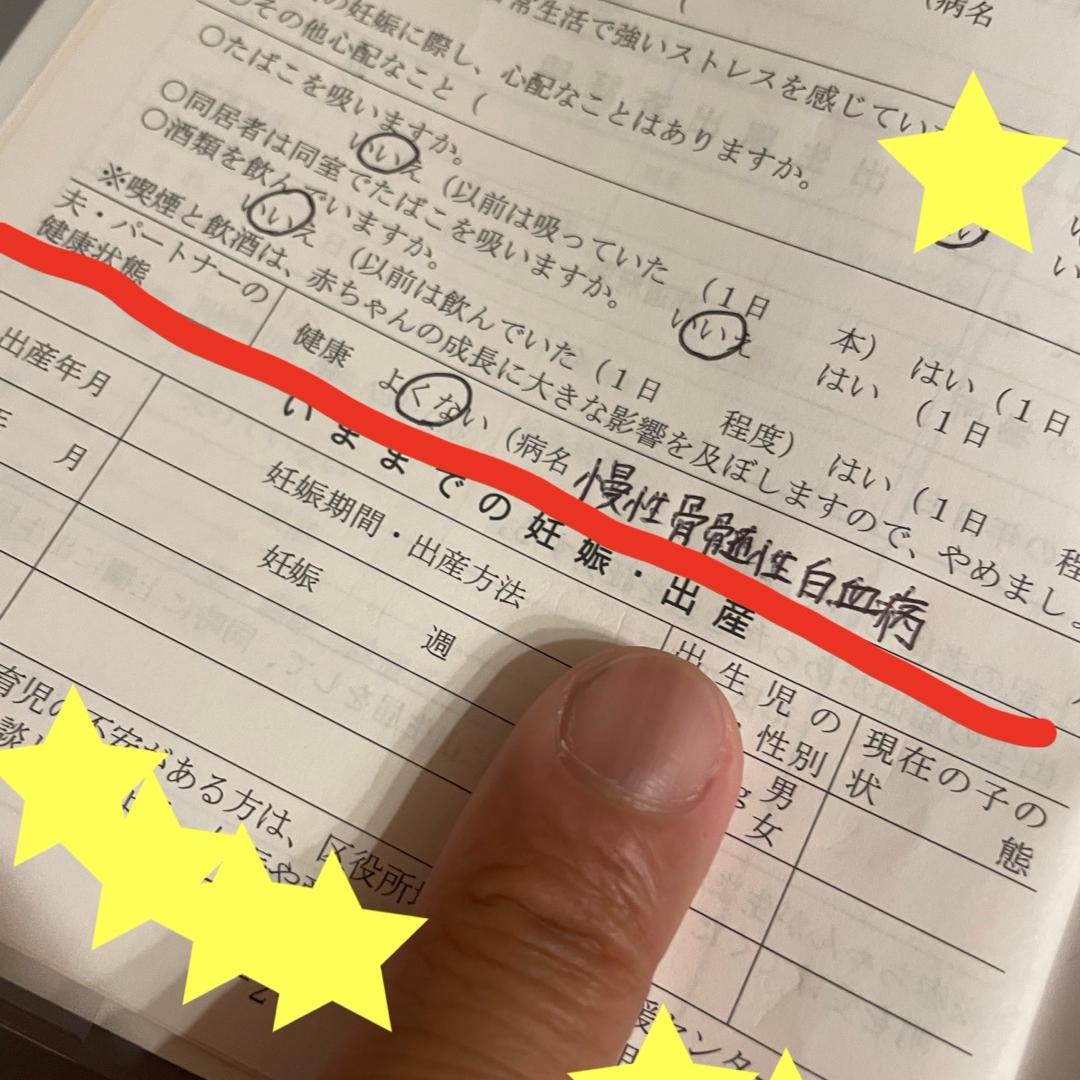 (病名
常生活で強いストレスを感じてい
の妊娠に際し、心配なことはありますか。
その他心配なこと (
○たばこを吸いますか。
いいえ (以前は吸っていた (1日 本) はい (1日
○同居者は同室でたばこを吸いますか。 いいえ はい (1日
○酒類を飲んでいますか。
いいえ (以前は飲んでいた (1日 程度) はい (1日 程
※喫煙と飲酒は、赤ちゃんの成長に大きな影響を及ぼしますので、やめましょ
夫・パートナーの
健康状態
健康 よくない (病名 慢性骨髄性白血病
いままでの妊娠・出産
出産年月
妊娠期間・出産方法
出生児の
性別
現在の子の
状態
年 月
妊娠 週
g 男
女
育児の不安がある方は、区役所
談
援センタ